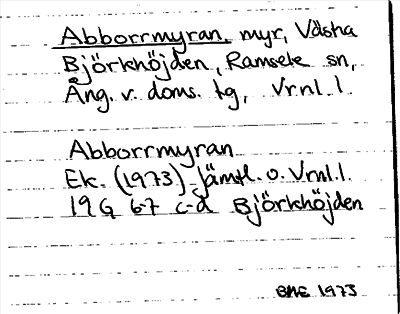 Abborrmyran, myr, Västra
Björkhöjden, Ramsele sn,
Ång. v. doms. tg, Vrnl. l.
Abborrmyran
Ek. (1973) Jämtl. o. Vrnl. l.
19G 6-7 c-d Björkhöjden
1973